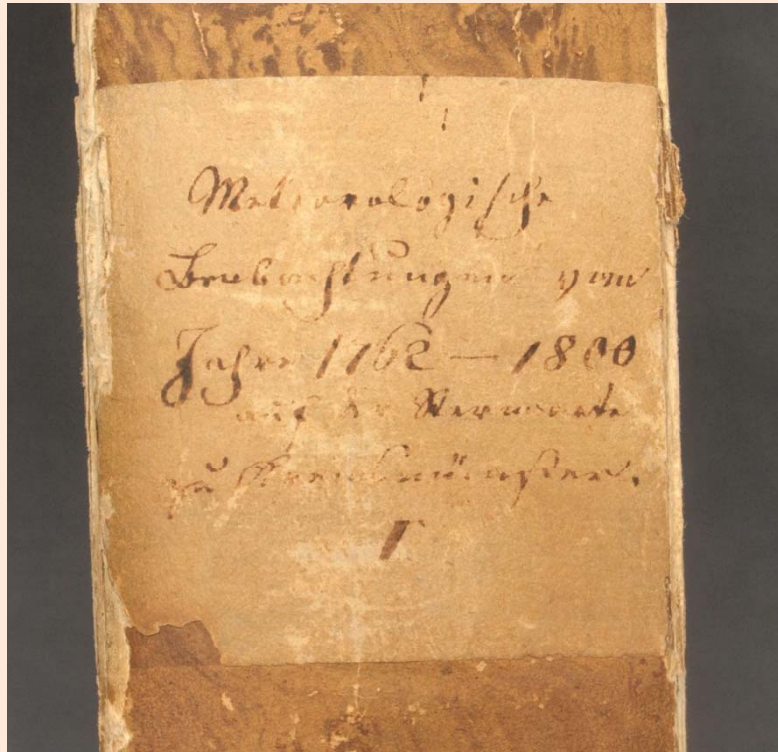 Meteorologische
Beobachtungen vom
Jahre 1762 — 1800
auf der Sternwarte
zu Kremsmünster.
I